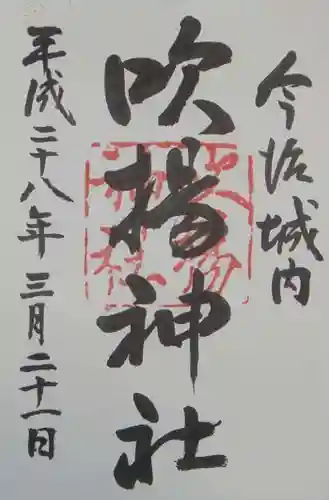 今治城内
吹揚神社
平成二十八年三月二十一日